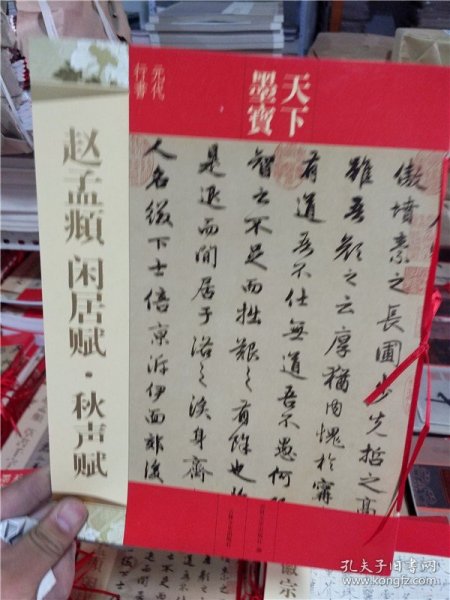 天下
墨寶
元代
行書
赵孟頫 闲居赋·秋声赋
傲墳素之長圃步先哲之高
雖吾顏之云厚猶内愧於甯
有道吾不仕無道吾不愚何
智之不足而拙艱之有餘也
是退而閒居于洛之涘身齊
人名綴下士倍京泝伊面郊後
徽宗
孔夫子旧书网
www.kongfz.com